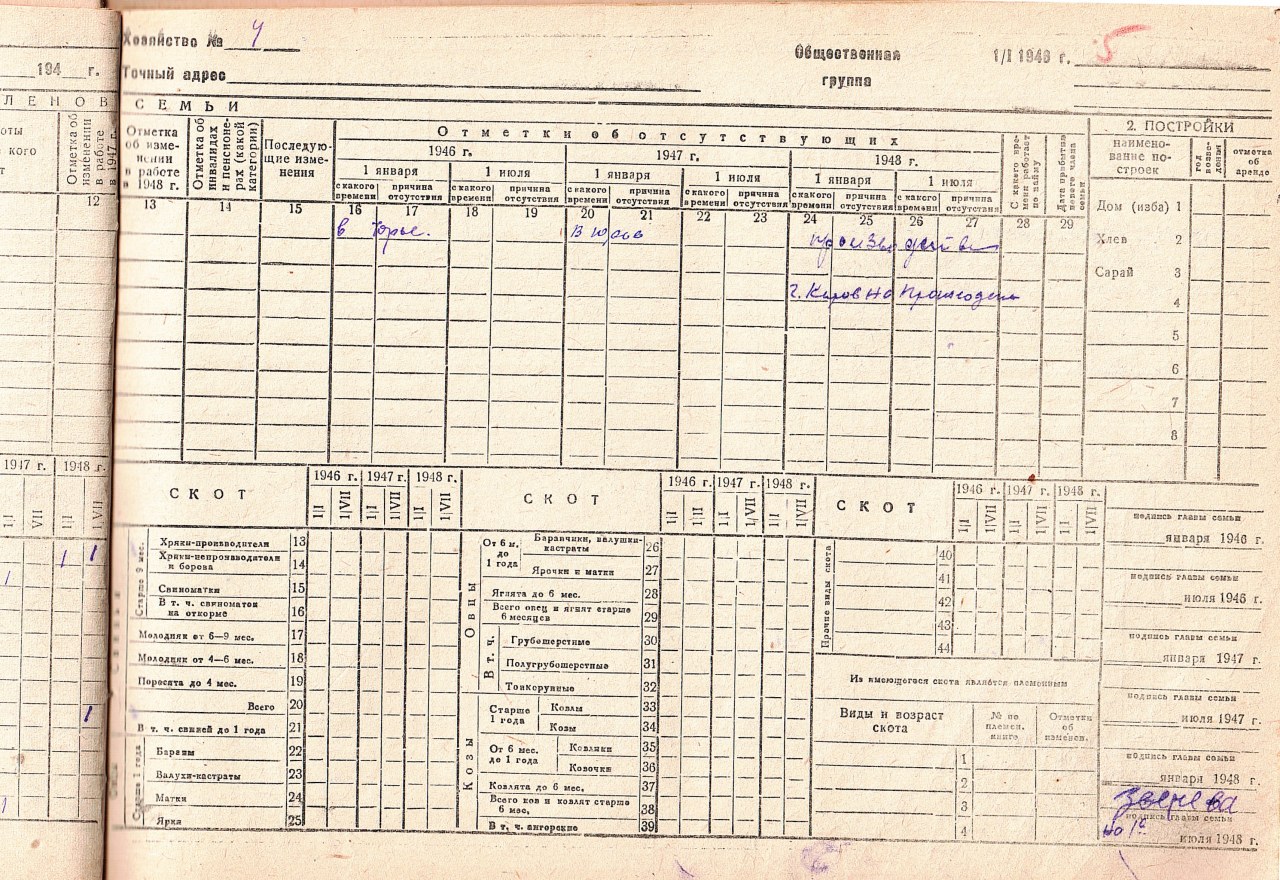 194 г.
ЛЕНОВ
оты
кого
т
Отметка об изменении в работе в 1947 г.
12
1947 г. 1948 г.
1/I VII 1/I 1/VII
Хозяйство № 4
Общественная группа
1/I 1946 г. 5
Точный адрес
СЕМЬИ
Отметка об изме-нении в работе в 1948 г.
Отметка об инвалидах и пенсионе-рах (какой категории)
Последую-щие изме-нения
Отметки об отсутствующих
1946 г. 1947 г. 1948 г.
1 января 1 июля 1 января 1 июля 1 января 1 июля
с какого времени причина отсутствия с какого времени причина отсутствия с какого времени причина отсутствия с какого времени причина отсутствия с какого времени причина отсутствия с какого времени причина отсутствия
С какого вре-мени работает по найму
Дата прибытия нового члена семьи
13 14 15 16 17 18 19 20 21 22 23 24 25 26 27 28 29
в
в
г. Киров на
2. ПОСТРОЙКИ
наимено-вание по-строек
год возве-дения
отметка об аренде
Дом (изба) 1
Хлев 2
Сарай 3
4
5
6
7
8
СКОТ
1946 г. 1947 г. 1948 г.
1/I 1/VII 1/I 1/VII 1/I 1/VII
Старше 9 мес.
Хряки-производители 13
Хряки-непроизводители и борова 14
Свиноматки 15
В т. ч. свиноматок на откорме 16
Молодняк от 6—9 мес. 17
Молодняк от 4—6 мес. 18
Поросята до 4 мес. 19
Всего 20
В т. ч. свиней до 1 года 21
Старше 1 года
Бараны 22
Валухи-кастраты 23
Матки 24
Ярки 25
СКОТ
1946 г. 1947 г. 1948 г.
1/I 1/VII 1/I 1/VII 1/I 1/VII
Овцы
От 6 м. до 1 года
Баранчики, валушки-кастраты 26
Ярочки и матки 27
Ягнята до 6 мес. 28
Всего овец и ягнят старше 6 месяцев 29
В т. ч.
Грубошерстные 30
Полугрубошерстные 31
Тонкорунные 32
Козы
Старше 1 года
Козлы 33
Козы 34
От 6 мес. до 1 года
Козлики 35
Козочки 36
Козлята до 6 мес. 37
Всего коз и козлят старше 6 мес. 38
В т. ч. ангорские 39
СКОТ
1946 г. 1947 г. 1948 г.
1/I 1/VII 1/I 1/VII 1/I 1/VII
Прочие виды скота
40
41
42
43
44
Из имеющегося скота является племенным
Виды и возраст скота
№ по племен. книге
Отметки об изменен.
1
2
3
4
подпись главы семьи
января 1946 г.
подпись главы семьи
июля 1946 г.
подпись главы семьи
января 1947 г.
подпись главы семьи
июля 1947 г.
подпись главы семьи
января 1948 г.
Зверева
подпись главы семьи
на 1º июля 1948 г.